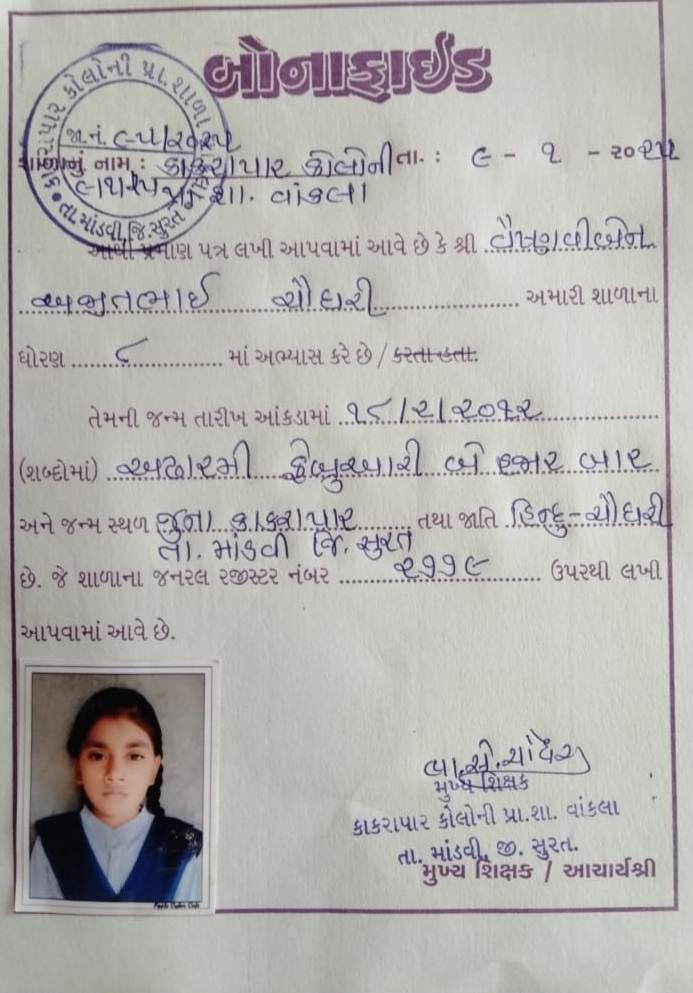 બોનાફાઈડ
કાકરાપાર કોલોની પ્રા. શાળા
તા. માંડવી, જિ. સુરત
જા.નં. ૯૫/૨૦૨૫
શાળાનું નામ : કાકરાપાર કોલોની તા. : ૯ - ૧ - ૨૦૨૫
પ્રા. શા. વાંકલા
આથી પ્રમાણ પત્ર લખી આપવામાં આવે છે કે શ્રી વૈષ્ણવીબેન
અજીતભાઈ ચૌધરી અમારી શાળાના
ધોરણ ૮ માં અભ્યાસ કરે છે / કરતા હતા.
તેમની જન્મ તારીખ આંકડામાં ૧૮/૨/૨૦૧૨
(શબ્દોમાં) અઢારમી ફેબ્રુઆરી બે હજાર બાર
અને જન્મ સ્થળ જુના કાકરાપાર તથા જાતિ હિન્દુ-ચૌધરી
તા. માંડવી જિ. સુરત
છે. જે શાળાના જનરલ રજીસ્ટર નંબર ૨૧૧૯ ઉપરથી લખી
આપવામાં આવે છે.
મુખ્ય શિક્ષક
કાકરાપાર કોલોની પ્રા.શા. વાંકલા
તા. માંડવી, જી. સુરત.
મુખ્ય શિક્ષક / આચાર્યશ્રી